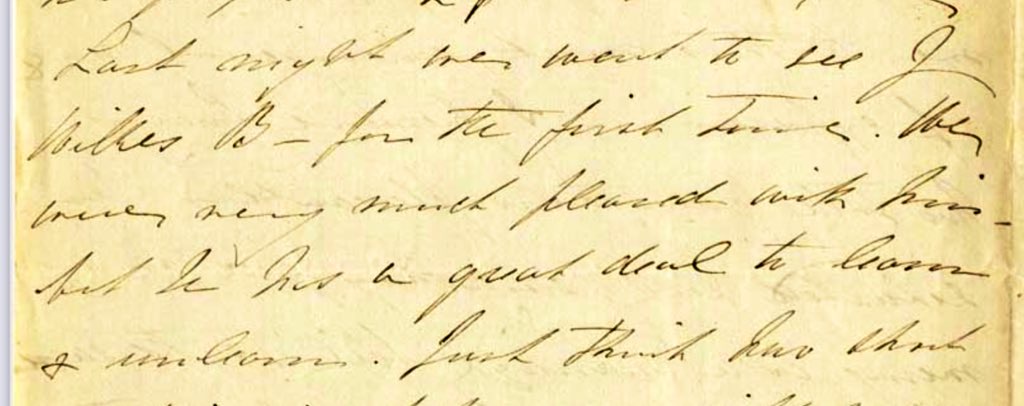 Last night we went to see J
Wilkes B – for the first time. We
were very much pleased with him –
but he has a great deal to learn
& unlearn. Just think how short